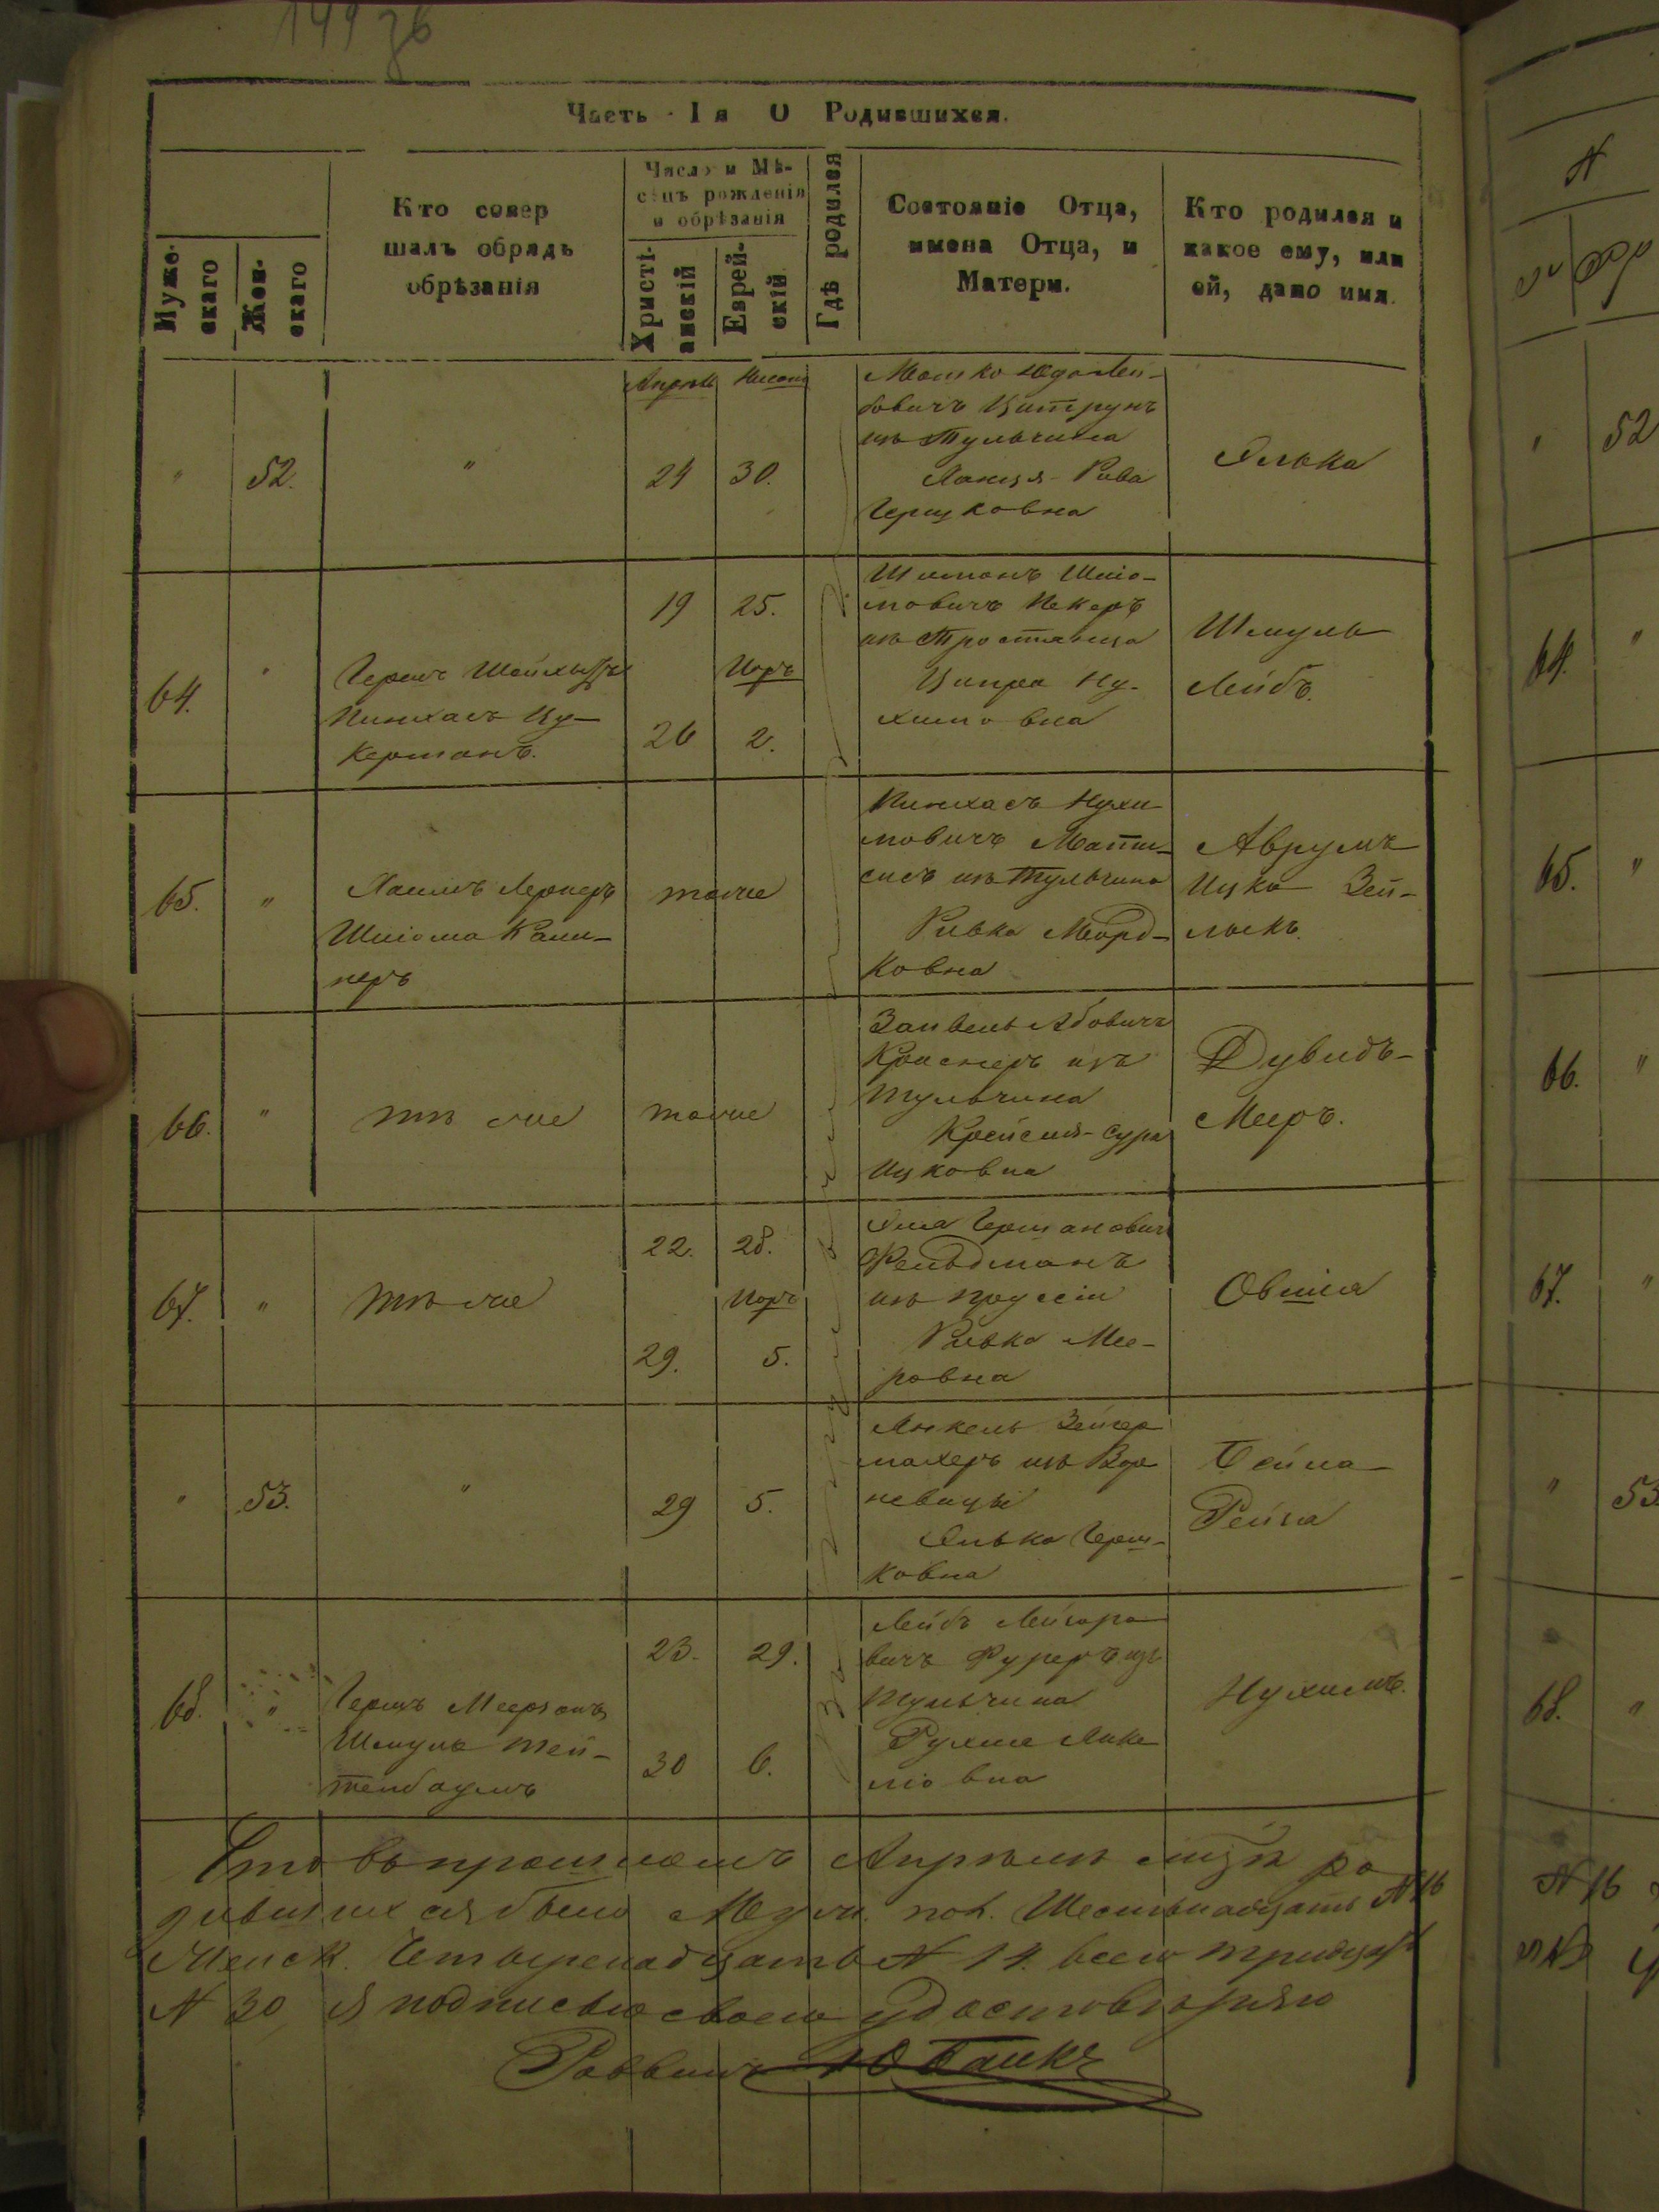 149
Часть I я О Родившихся.
Муже-
скаго
Жен-
скаго
Кто совер
шалъ обрядъ
обрѣзанія
Число и Мѣ-
сяцъ рожденія
и обрѣзанія
Христі-
анскій
Еврей-
скій
Гдѣ родился
Состояніе Отца,
имена Отца, и
Матери.
Кто родился и
какое ему, или
ей, дано имя.
Апрѣль Нисонъ
" 52. " 24 30.
Мошко Юдо Лей-
бовичъ Цитрунъ
изъ Тульчина
Рива
Гершковна
Элька
64. "
Гершъ
Пинхасъ Цу-
керманъ.
19 25.
Иоръ
26 2.
Шлома Шліо-
мовичъ Пекеръ
изъ Тростянца
Ципра Ну-
химовна
Шмуль
Лейбъ.
65. "
Хаимъ Лернеръ
Шліома Каш-
неръ
тоже
Пинхасъ Нухи-
мовичъ Мати-
сисъ изъ Тульчина
Ривка Морд-
ковна
Аврумъ
Ицко Зей-
лыкъ.
66. "
тѣ же
тоже
Занвель Абовичъ
Краснеръ изъ
Тульчина
Крейся-Сура
Ицковна
Дувидъ-
Мееръ.
67. "
тѣ же
22. 28.
Иоръ
29. 5.
Гершановичъ
Фельдманъ
изъ Пруссіи
Ривка Мее-
ровна
Овшія
" 53. " 29 5.
Янкель Зейгер
махеръ изъ Воро
невицы
Элька Герш-
ковна
Бейла
Рейза
68. "
Гершъ Меерзонъ
Шмуль Тей-
тельбаумъ
23. 29.
30 6.
Лейбъ Лейзеро
вичъ Фуреръ изъ
Тульчина
Рухля Янке
ліовна
Нухимъ.
Въ Тульчинѣ
Что въ прошломъ Апрѣлѣ мцѣ ро
дившихся было Муж. пол. Шестьнадцать № 16
Женск. Четыренадцать № 14. всего тридцать
№ 30 я подписью своею удостовѣряю
Раввинъ Ю Банкъ
52
64.
65.
66.
67.
53
68.
№ 16